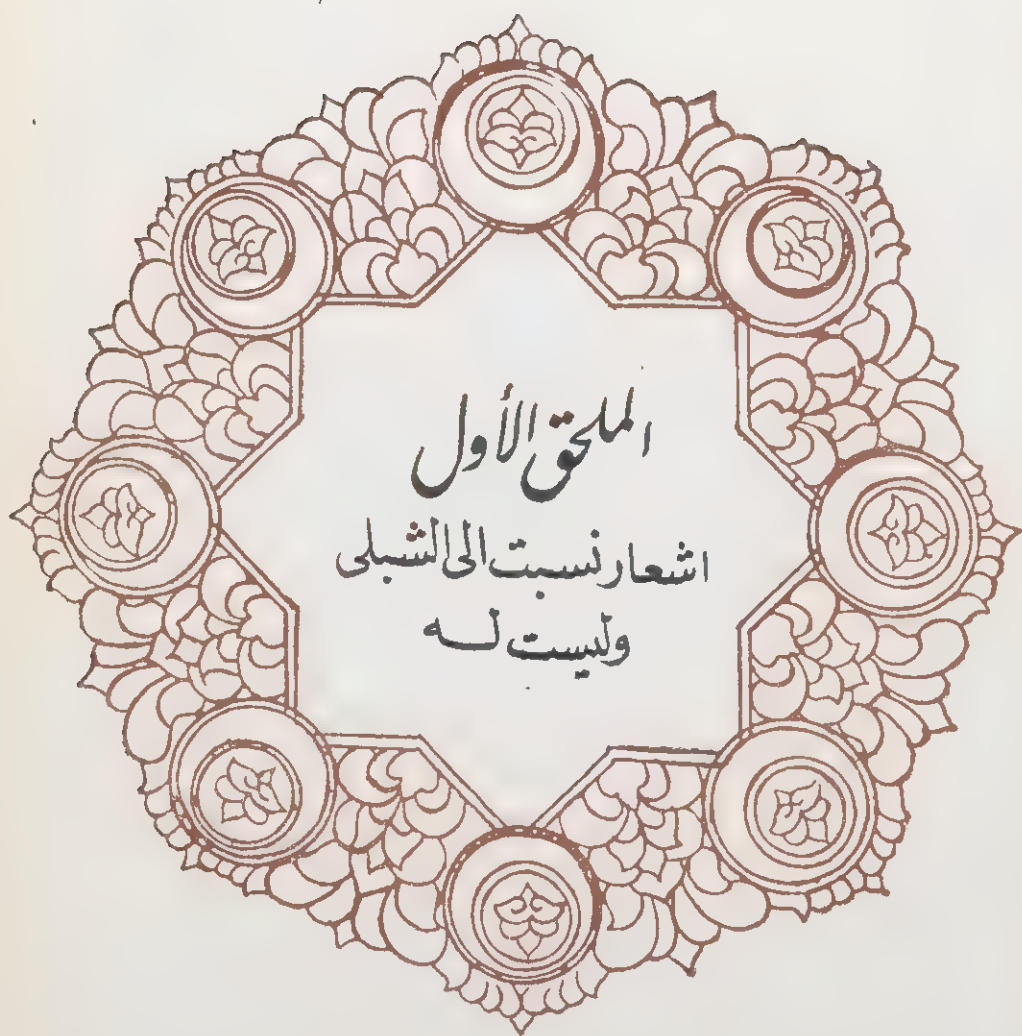 الملحق الأول
اشعار نسبت الى الشبلى
وليست له